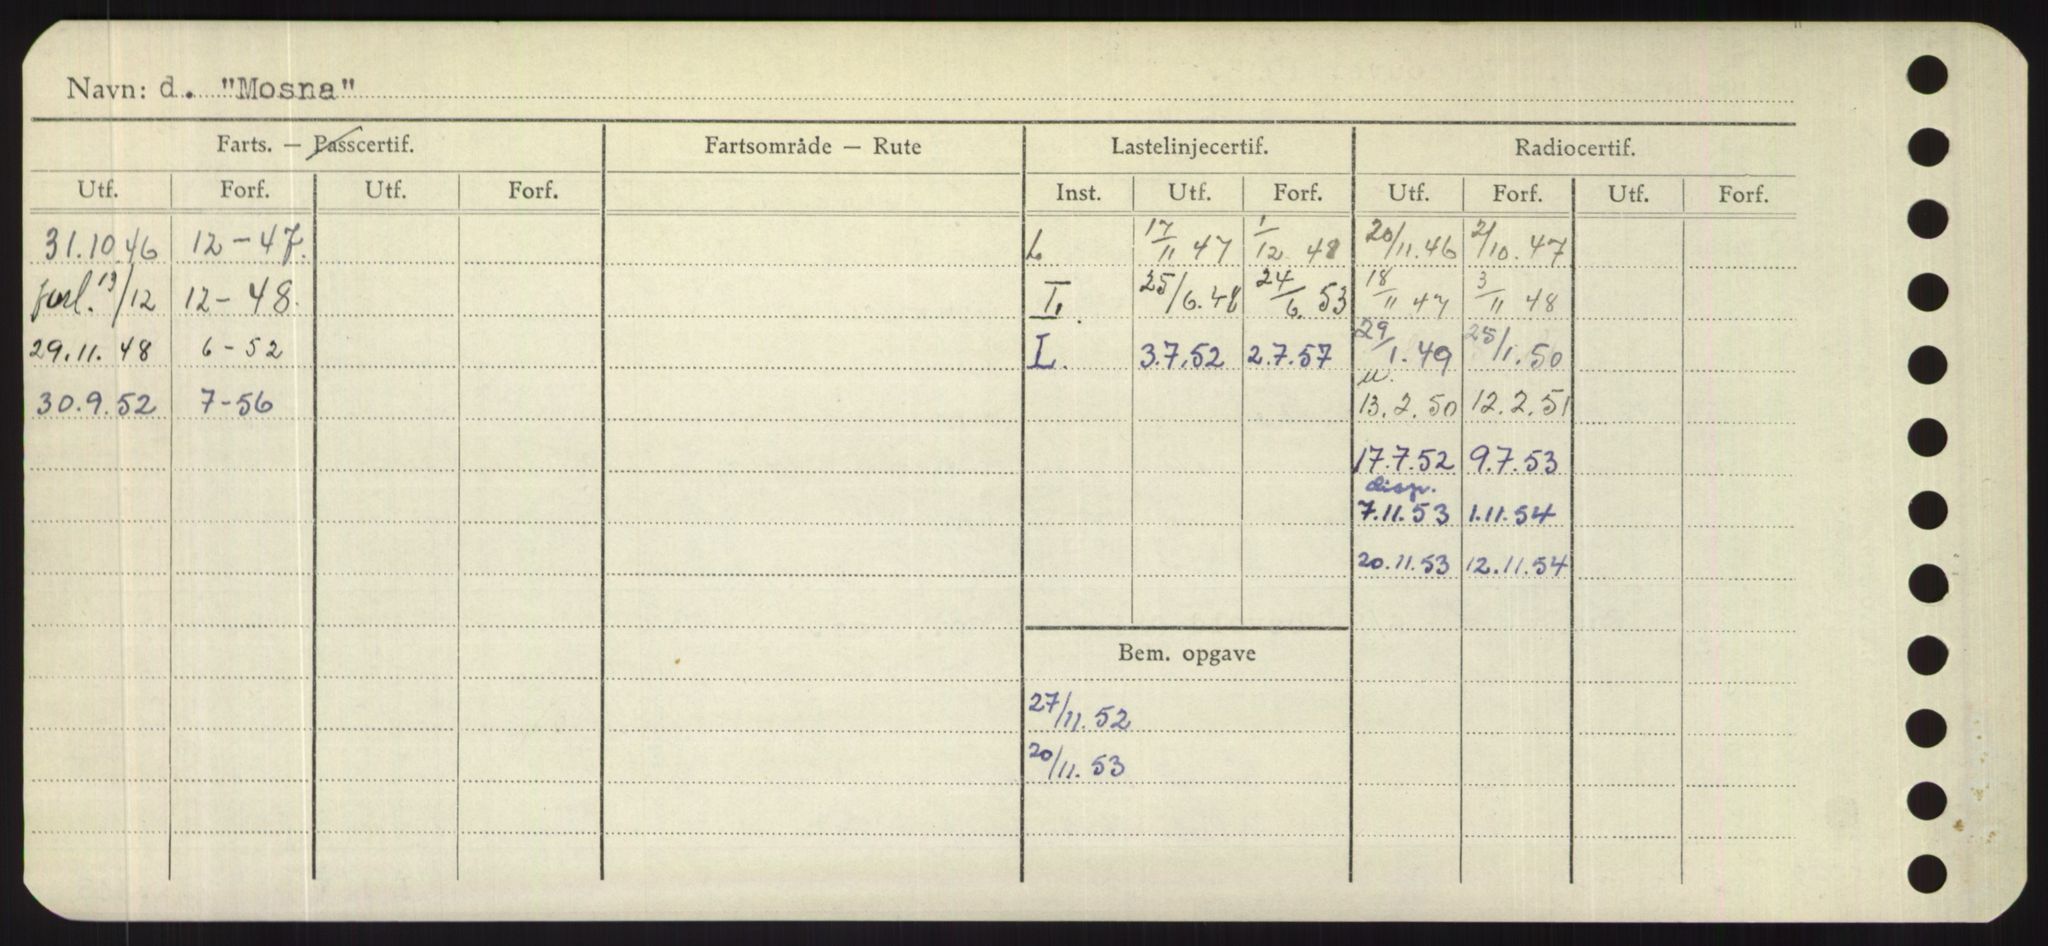 Navn: d. "Mosna"
Farts. — Passcertif. Fartsområde — Rute Lastelinjecertif. Radiocertif.
Utf. Forf. Utf. Forf. Inst. Utf. Forf. Utf. Forf. Utf. Forf.
31.10.46 12-47. L 17/11 47 1/12 48 20/11.46 2/10.47
forl. 13/12 12-48. I. 25/6.48 24/6.53 18/11 47 3/11 48
29.11.48 6-52 L. 3.7.52 2.7.57 29/1.49 25/1.50
30.9.52 7-56 u. 13.2.50 12.2.51
17.7.52 9.7.53
disp.
7.11.53 1.11.54
20.11.53 12.11.54
Bem. opgave
27/11.52
20/11.53